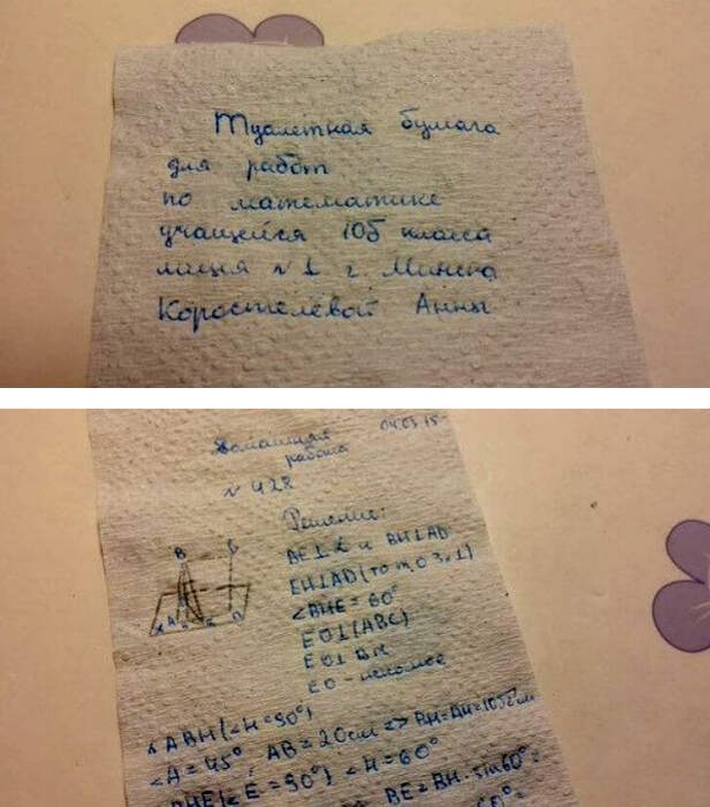 Туалетная бумага
для работ
по математике
учащейся 10б класса
лицея №1 г. Минска
Коростелёвой Анны
04.03.15
Домашняя
работа
№ 428
Решение:
BE⊥α и BH⊥AD
EH⊥AD (то т.о 3х⊥)
∠BHE = 60°
EO⊥(ABC)
EO⊥BH
EO - искомое
B
A
D
△ABH (∠H=90°)
∠A=45° AB=20см => BH=AH=10√2см
BHE (∠E=90°) ∠H=60°
BE=BH·sin60°=